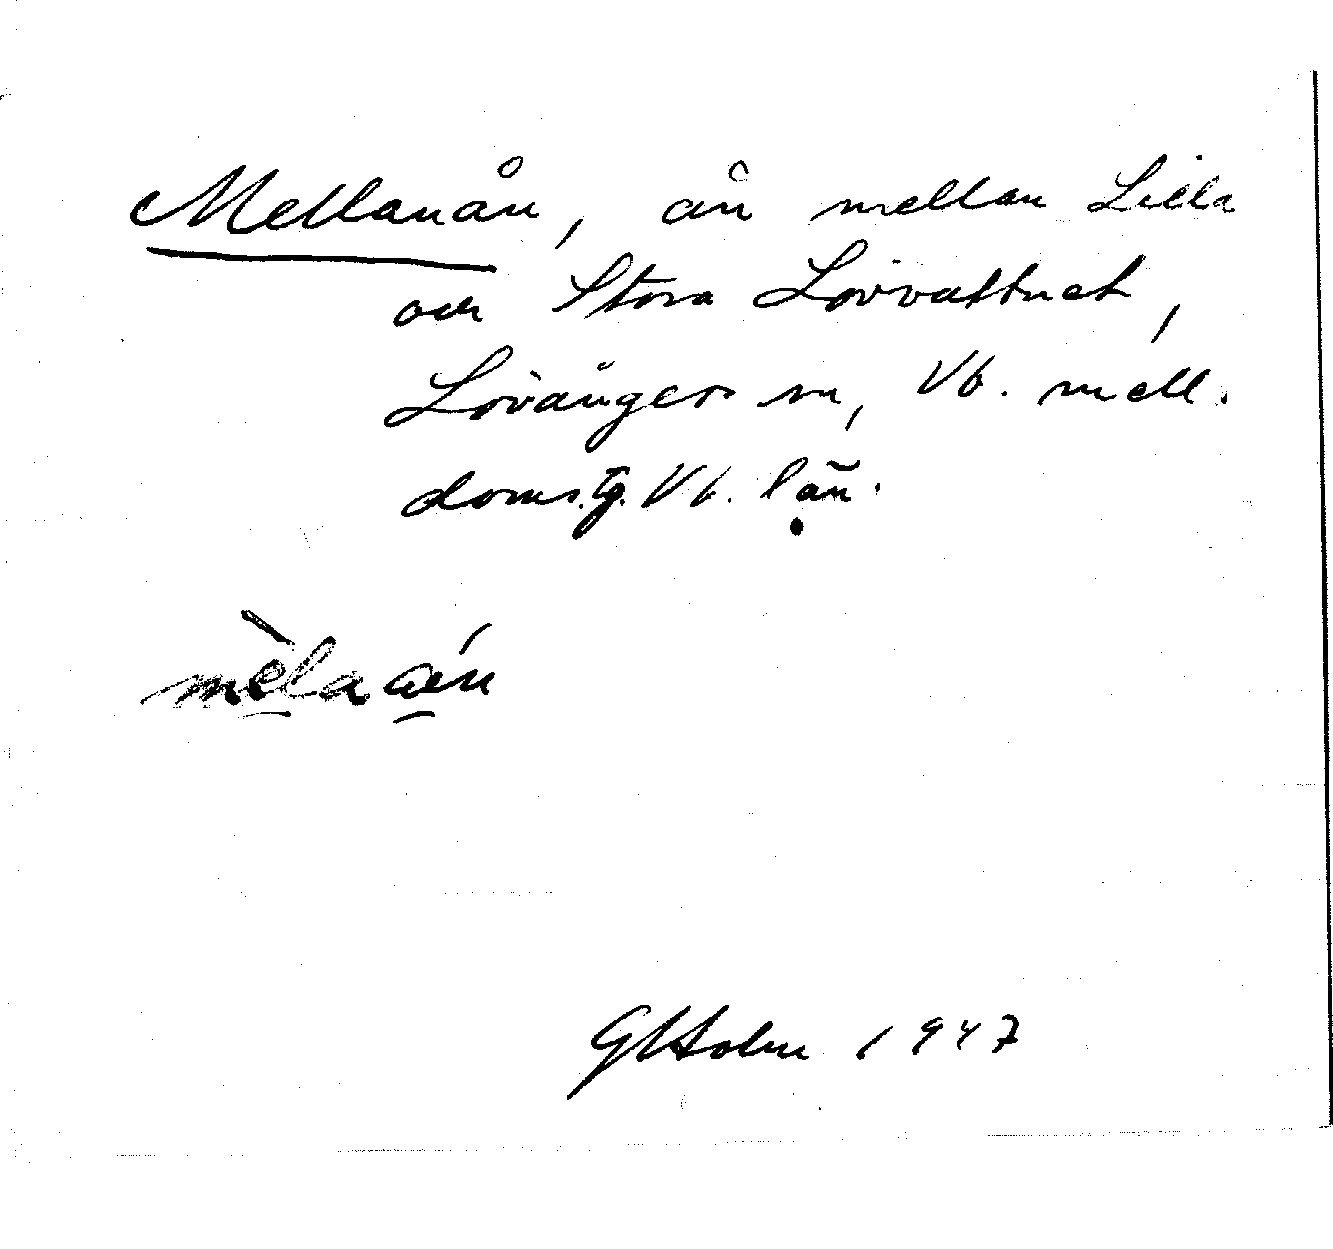 Mellanån, ån mellan Lilla
och Stora Lövvattnet,
Lövånger sn, Vb. mell.
doms.tg. Vb. län.
GHolm 1947